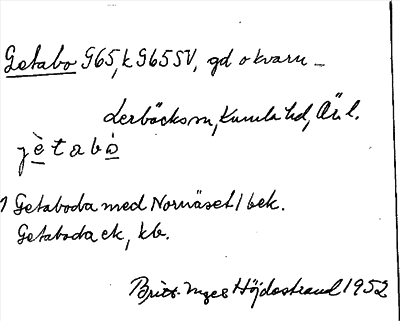 Getabo 965, k 965 SV, gd o kvarn –
Lerbäcks sn, Kumla hd, Ör. l.
jètabò
1 Getaboda med Nornäset / bek.
Getaboda ek, kb.
Britt-Inger Höjdestrand 1952